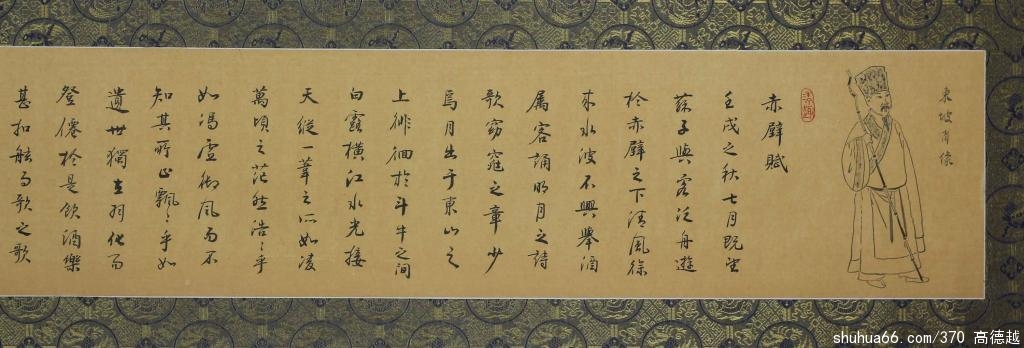 東坡肖像
赤壁賦
壬戌之秋七月既望
蘇子與客泛舟遊
於赤壁之下清風徐
來水波不興舉酒
属客誦明月之詩
歌窈窕之章少
焉月出于東山之
上徘徊於斗牛之間
白露橫江水光接
天縱一葦之所如凌
萬頃之茫然浩々乎
如馮虛御風而不
知其所止飄々乎如
遺世獨立羽化而
登僊於是飲酒樂
甚扣舷而歌之歌
shuhua66.com/370 高德越